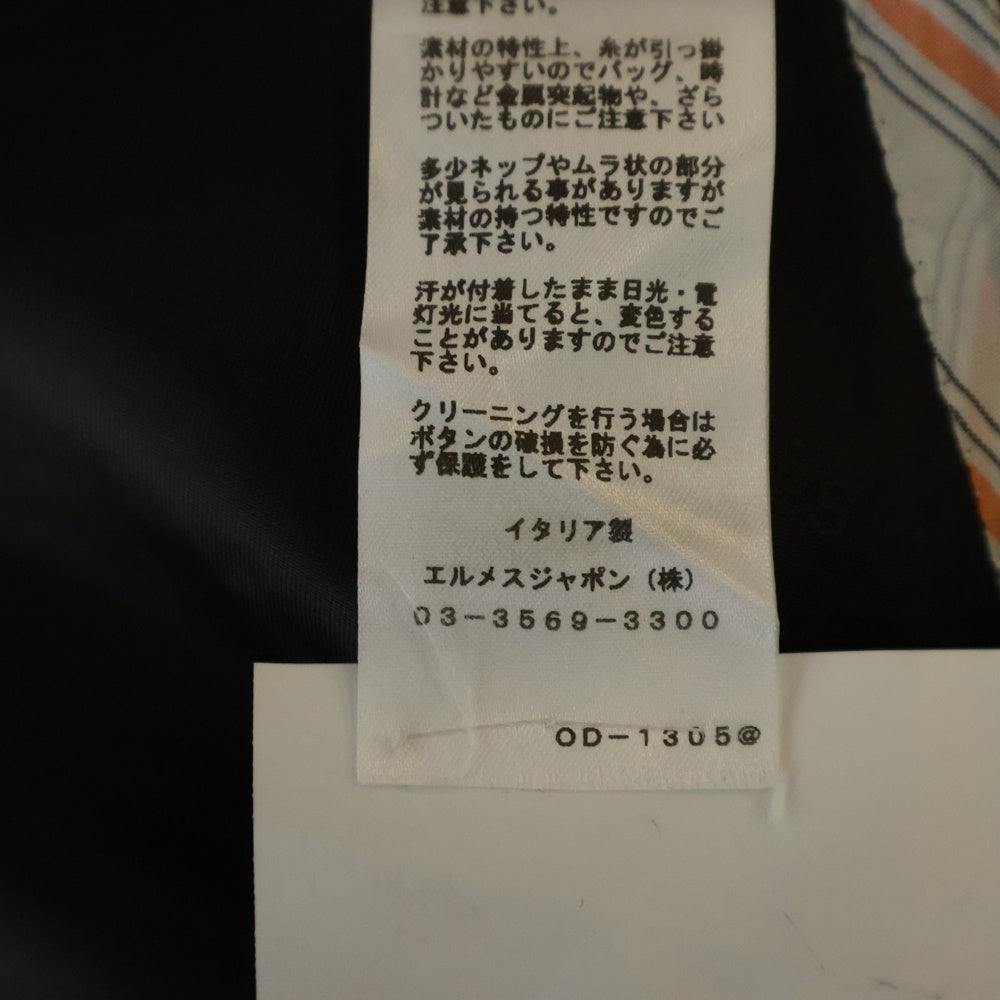 注意下さい。
素材の特性上、糸が引っ掛
かりやすいのでバッグ、時
計など金属突起物や、ざら
ついたものにご注意下さい
多少ネップやムラ状の部分
が見られる事がありますが
素材の持つ特性ですのでご
了承下さい。
汗が付着したまま日光・電
灯光に当てると、変色する
ことがありますのでご注意
下さい。
クリーニングを行う場合は
ボタンの破損を防ぐ為に必
ず保護をして下さい。
イタリア製
エルメスジャポン（株）
03-3569-3300
OD-1305@